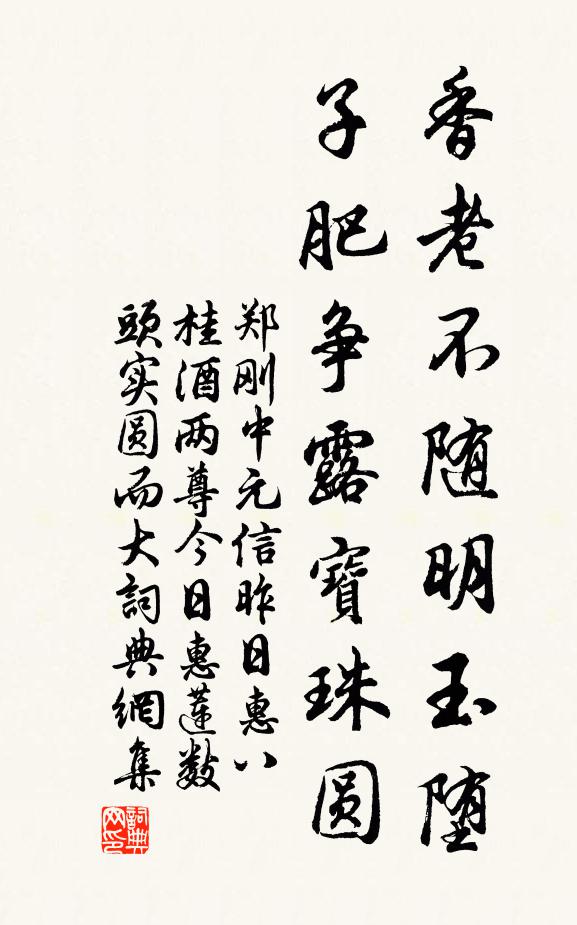 香老不随明玉堕
子肥争露寶珠圆
郑刚中元信昨日惠八
桂酒两尊今日惠莲数
頭实圆而大詞典網集
詞典网印